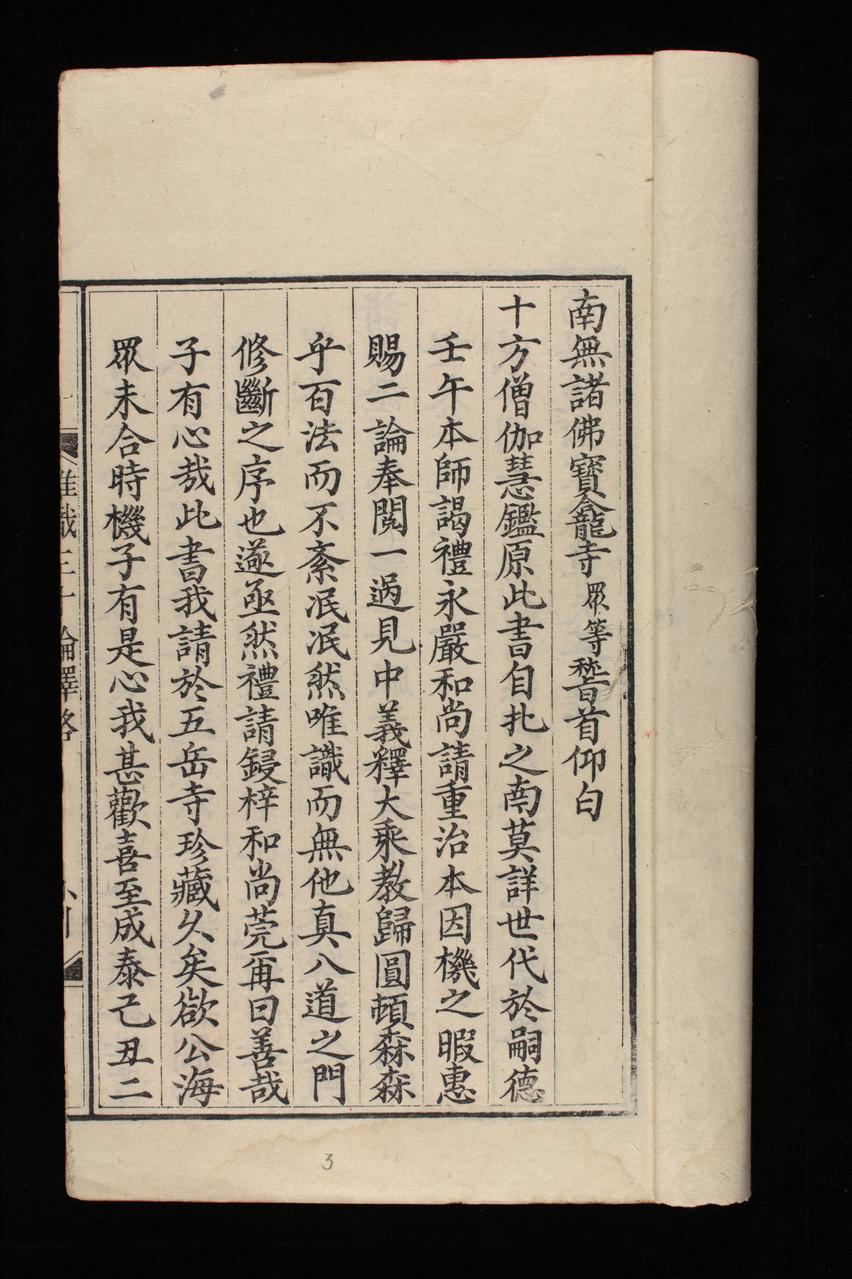 南無諸佛寶龕寺眾等嵆首仰白
十方僧伽慧鑑原此書自北之南莫詳世代於嗣德
壬午本師謁禮永嚴和尚請重治本因機之暇惠
賜二論奉閱一過見中義釋大乘教歸圓頓森森
乎百法而不紊泯泯然唯識而無他真八道之門
修斷之序也遂亟然禮請鋟梓和尚莞爾曰善哉
子有心哉此書我請於五岳寺珍藏久矣欲公海
眾未合時機子有是心我甚歡喜至成泰己丑二
唯識三十論釋畧